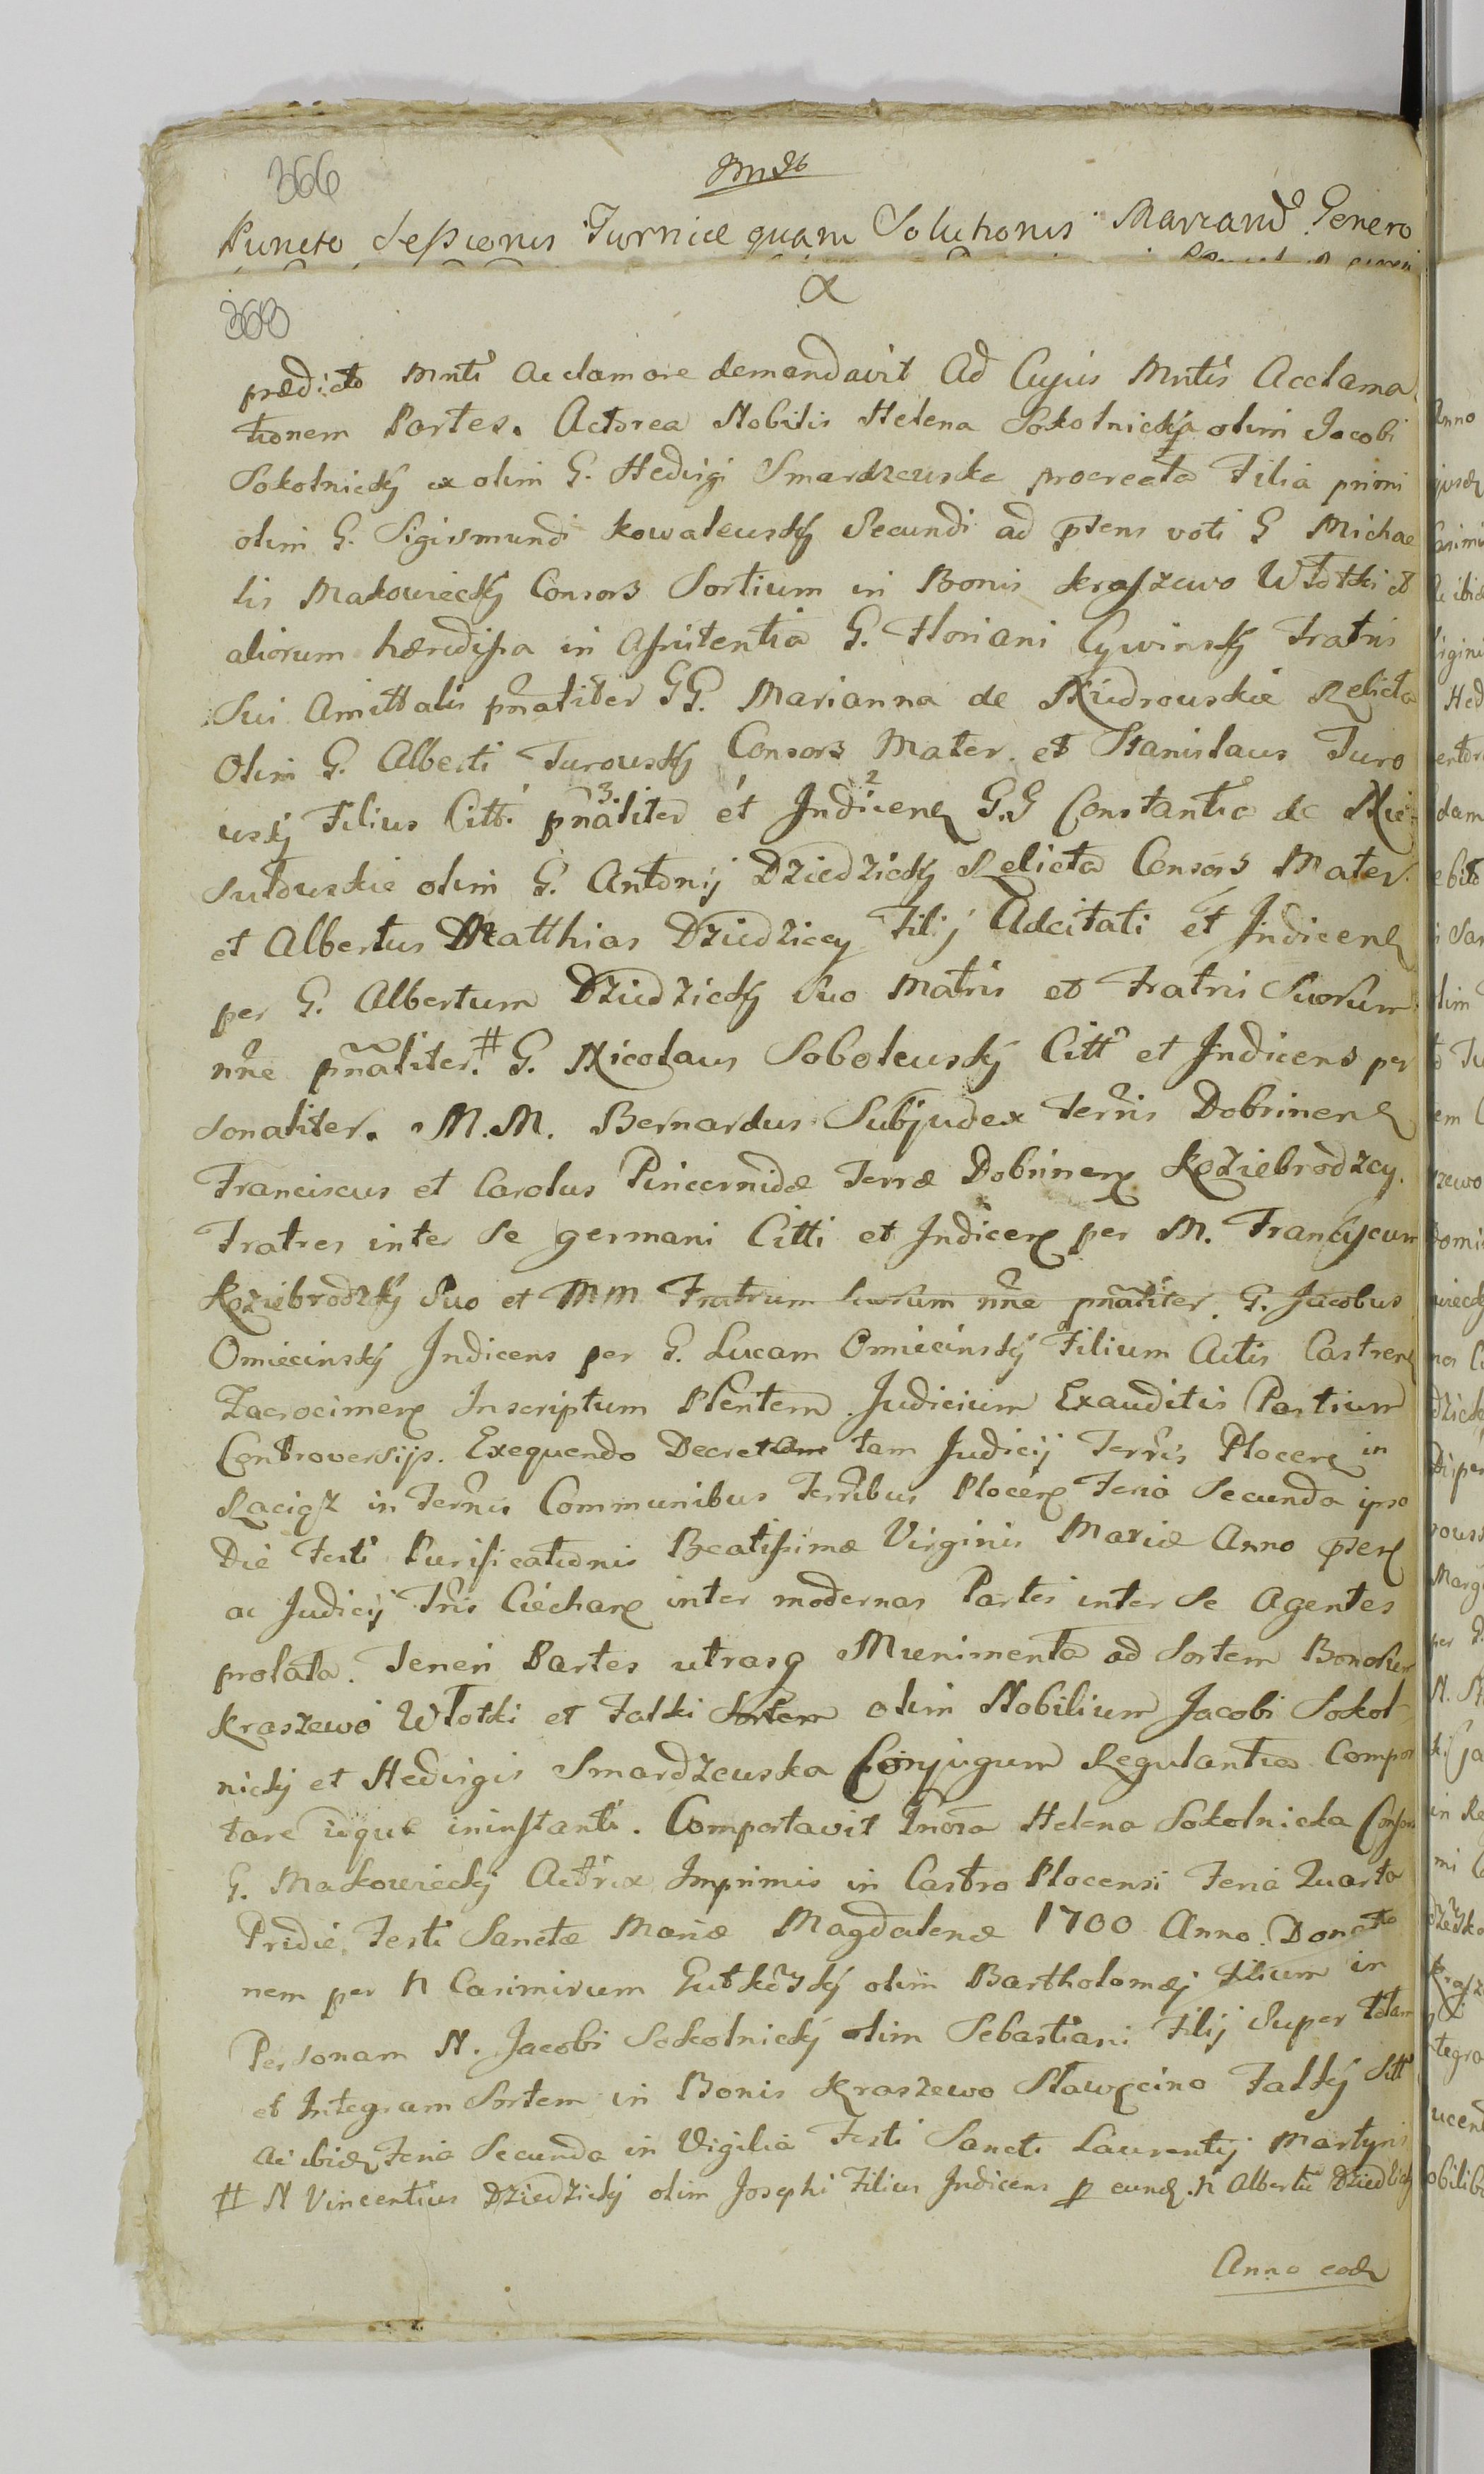 366
Puncto Sessionis Turnice quam Solutionis Marcand Genero
360
prædicto Mnti Acclamare demandavit Ad Cujus Mntis Acclama
tionem Partes. Actorea Nobilis Helena Sokolnicky olim Jacobi
Sokolnicky ex olim G. Hedvigi Smardzewska procreata Filia primi
olim G. Sigismundi Kowalewsky Secundi ad ptens voti G Michae
lis Makowiecky Consors Sortium in Bonis Kraszewo Wtotki et
aliorum hæredissa in Assitentia G. Floriani Cywinsky Fratris
Sui Amittalis pnaliter GG. Marianna de Niedrouskie Relicta
Olim G. Alberti Turousky Consors Mater et Stanislaus Turo
usky Filius Citt. pnaliter 3 et Indicen 2 G.G Constantia de Nie
sutouskie olim G. Antonij Dziedzicky Relicta Consors Mater
et Albertus Matthias Dziedziccy Filij Adcitati et Indicen
per G. Albertum Dziedzicky Suo Matris et Fratris Suorum
nne pnaliter. # G. Nicolaus Soboleusky Citt et Indicens per
sonaliter. M.M. Bernardus Subjudex Terris Dobrinen
Franciscus et Carolus Pincernidæ Terræ Dobrinen Koziebrodzcy.
Fratres inter Se germani Citti et Indicen per M. Franciscum
Koziebrodzky Suo et MM Fratrum Suorum nne pnaliter. G. Jacobus
Omiecinsky Indicens per G. Lucam Omiecinsky Filium Actis Castren
Zacrocimen Inscriptum Plentem Judicium Exauditis Partium
Controversijs. Exequendo Decretam tam Judicij Terris Plocen in
Raciąz in Terris Communibus Terribus Plocen Feria Secunda ipso
Die Festi Purificationis Beatissimæ Virginis Mariæ Anno pten
ac Judicij Tris Ciechan inter modernas Partes inter Se Agentes
prolata. Teneri Partes utrasq Munimenta ad Sortem Bonorum
Kraszewo Wtotki et Falki Sortem olim Nobilium Jacobi Sokol
nicky et Hedvigis Smardzewska Conjugum Regulantia Compor
tare idque ininstanti. Comportavit Gnosa Helena Sokolnicka Consors
G. Makowiecky Actrix Imprimis in Castro Plocensi Feria Quarta
Pridie Festi Sanctæ Mariæ Magdalenæ 1700 Anno. Donatio
nem per N Casimirum Gutkowsky olim Bartholomæj Filium in
Personam N. Jacobi Sokolnicky olim Sebastiani Filij Super totam
et Integram Sortem in Bonis Kraszewo Sławęcino Falky Sitt
Ac ibid Feria Secunda in Vigilia Festi Sancti Laurentij Martyris
# N Vincentius Dziedzicky olim Josephi Filius Indicens p eund. N Albertu Dziedzicky
Anno eod